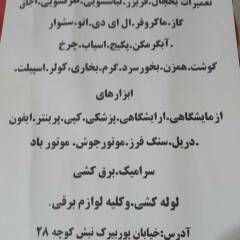 تعمیرات یخچال.فریزر.لباسشویی.ظرفشویی.اجاق
گاز.ماکروفر.ال ای دی.اتو.سشوار
.آبگرمکن.پکیج.اسیاب.چرخ
گوشت.همزن.بخورسرد.گرم.بخاری.کولر.اسپیلت.
ابزارهای
ازمایشگاهی.ارایشگاهی.پزشکی.کپی.پرینتر.ایفون
.دریل.سنگ فرز.موتورجوش. موتور باد
سرامیک.برق کشی
لوله کشی.وکلیه لوازم برقی.
آدرس:خیابان پوربیرک نبش کوچه ۲۸